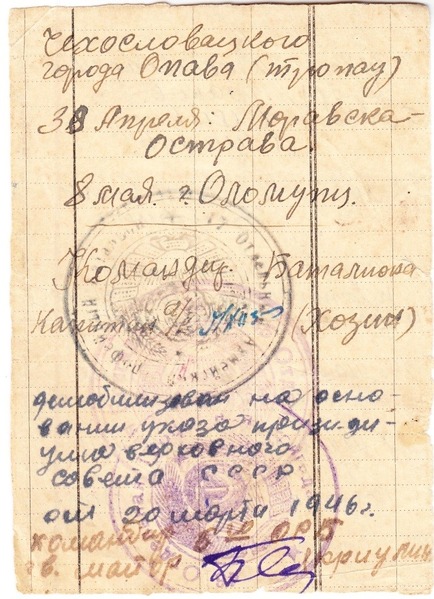 Чехословацкого
города Опава (тропау)
30 Апреля: Моравска-
Острава.
8 мая. г. Оломунц.
Командир. Баталиона
Капитан (Хозин)
Отдельный Армейский
демобилизован на осно-
вании указа президи-
ума верховного
совета СССР
от 20 марта 1946 г.
командир
гв. майор